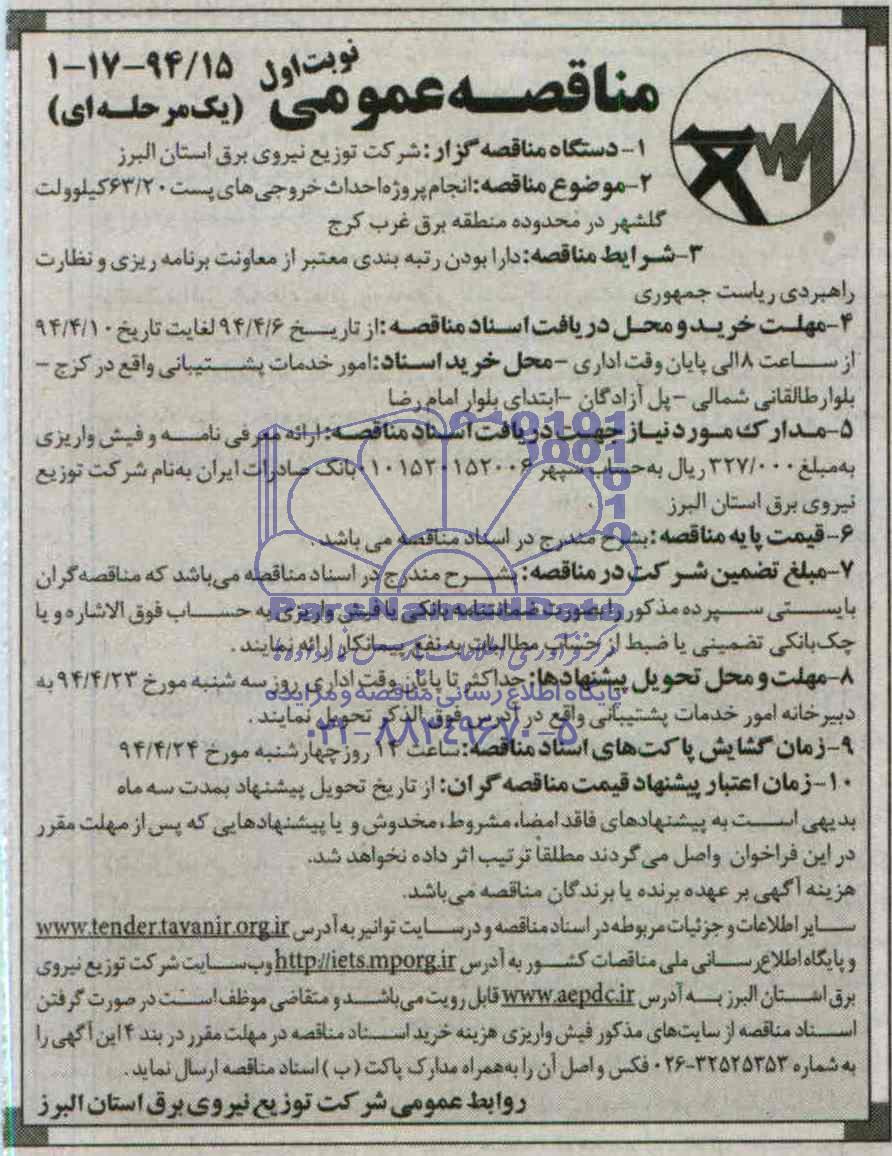 نوبت اول
مناقصه عمومی (یک مرحله ای) ۹۴/۱۵-۱۷-۱
۱- دستگاه مناقصه گزار: شرکت توزیع نیروی برق استان البرز
۲- موضوع مناقصه: انجام پروژه احداث خروجی های پست ۶۳/۲۰ کیلوولت
گلشهر در محدوده منطقه برق غرب کرج
۳- شرایط مناقصه: دارا بودن رتبه بندی معتبر از معاونت برنامه ریزی و نظارت
راهبردی ریاست جمهوری
۴- مهلت خرید و محل دریافت اسناد مناقصه: از تاریخ ۹۴/۴/۶ لغایت تاریخ ۹۴/۴/۱۰
از ساعت ۸ الی پایان وقت اداری - محل خرید اسناد: امور خدمات پشتیبانی واقع در کرج -
بلوار طالقانی شمالی - پل آزادگان - ابتدای بلوار امام رضا
۵- مدارک مورد نیاز جهت دریافت اسناد مناقصه: ارائه معرفی نامه و فیش واریزی
به مبلغ ۳۲۷/۰۰۰ ریال به حساب سپهر ۰۱۰۱۵۲۰۱۵۲۰۰۶ بانک صادرات ایران به نام شرکت توزیع
نیروی برق استان البرز
۶- قیمت پایه مناقصه: بشرح مندرج در اسناد مناقصه می باشد.
۷- مبلغ تضمین شرکت در مناقصه: بشرح مندرج در اسناد مناقصه می باشد که مناقصه گران
بایستی سپرده مذکور را بصورت ضمانتنامه بانکی یا فیش واریزی به حساب فوق الاشاره و یا
چک بانکی تضمینی یا ضبط از حساب مطالبات به نفع پیمانکار ارائه نمایند.
۸- مهلت و محل تحویل پیشنهادها: حداکثر تا پایان وقت اداری روز سه شنبه مورخ ۹۴/۴/۲۳ به
دبیرخانه امور خدمات پشتیبانی واقع در آدرس فوق الذکر تحویل نمایند.
۹- زمان گشایش پاکت های اسناد مناقصه: ساعت ۱۴ روز چهارشنبه مورخ ۹۴/۴/۲۴
۱۰- زمان اعتبار پیشنهاد قیمت مناقصه گران: از تاریخ تحویل پیشنهاد بمدت سه ماه
بدیهی است به پیشنهادهای فاقد امضا، مشروط، مخدوش و یا پیشنهادهایی که پس از مهلت مقرر
در این فراخوان واصل می گردند مطلقاً ترتیب اثر داده نخواهد شد.
هزینه آگهی بر عهده برنده یا برندگان مناقصه می باشد.
سایر اطلاعات و جزئیات مربوطه در اسناد مناقصه و در سایت توانیر به آدرس www.tender.tavanir.org.ir
و پایگاه اطلاع رسانی ملی مناقصات کشور به آدرس http://iets.mporg.ir وب سایت شرکت توزیع نیروی
برق استان البرز به آدرس www.aepdc.ir قابل رویت می باشد و متقاضی موظف است در صورت گرفتن
اسناد مناقصه از سایت های مذکور فیش واریزی هزینه خرید اسناد مناقصه در مهلت مقرر در بند ۴ این آگهی را
به شماره ۳۲۵۲۵۳۵۳-۰۲۶ فکس و اصل آن را به همراه مدارک پاکت (ب) اسناد مناقصه ارسال نماید.
روابط عمومی شرکت توزیع نیروی برق استان البرز
ParsNamadData
پایگاه اطلاع رسانی مناقصه و مزایده
۰۲۱-۸۸۳۴۹۶۷۰-۵